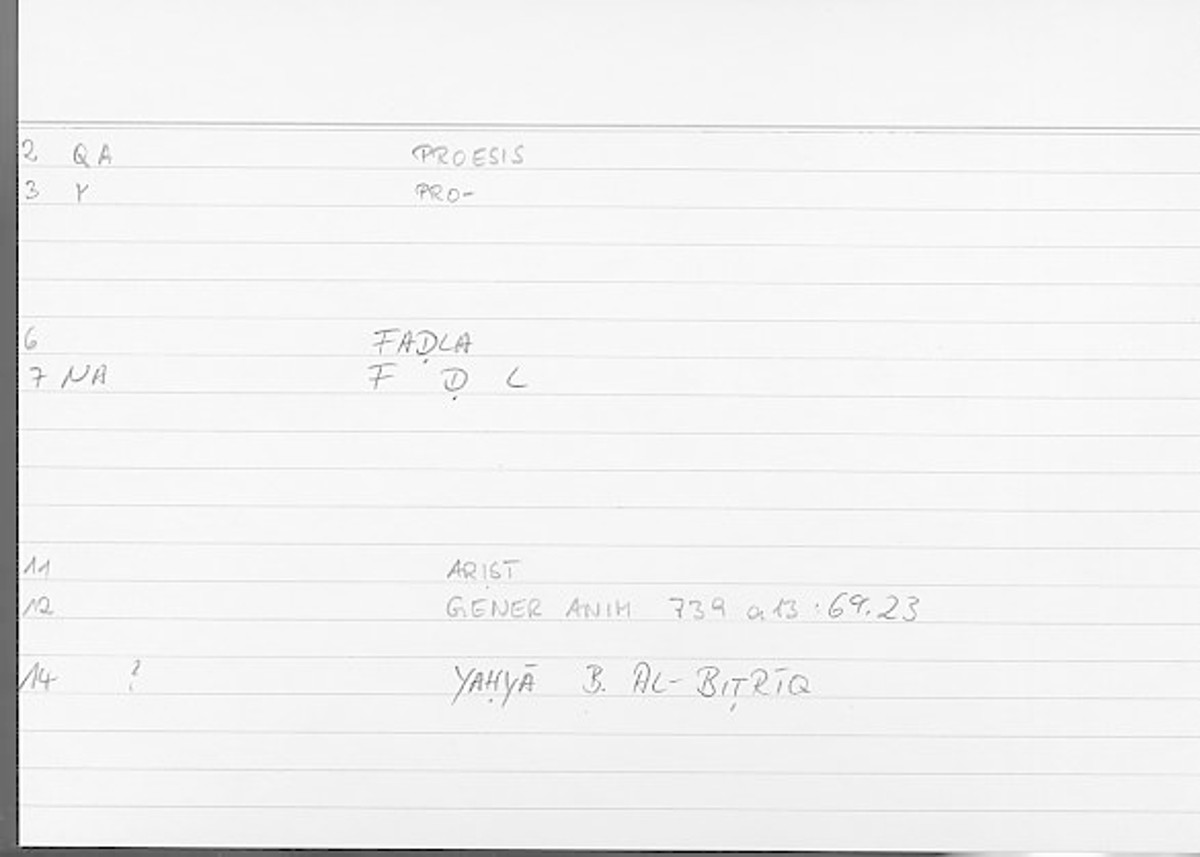 2 QA PROESIS
3 Y PRO-
6 FAḌLA
7 NA F Ḍ L
11 ARIST
12 GENER ANIM 739 a 13 : 69.23
14 ? YAḤYĀ B. AL-BIṬRĪQ